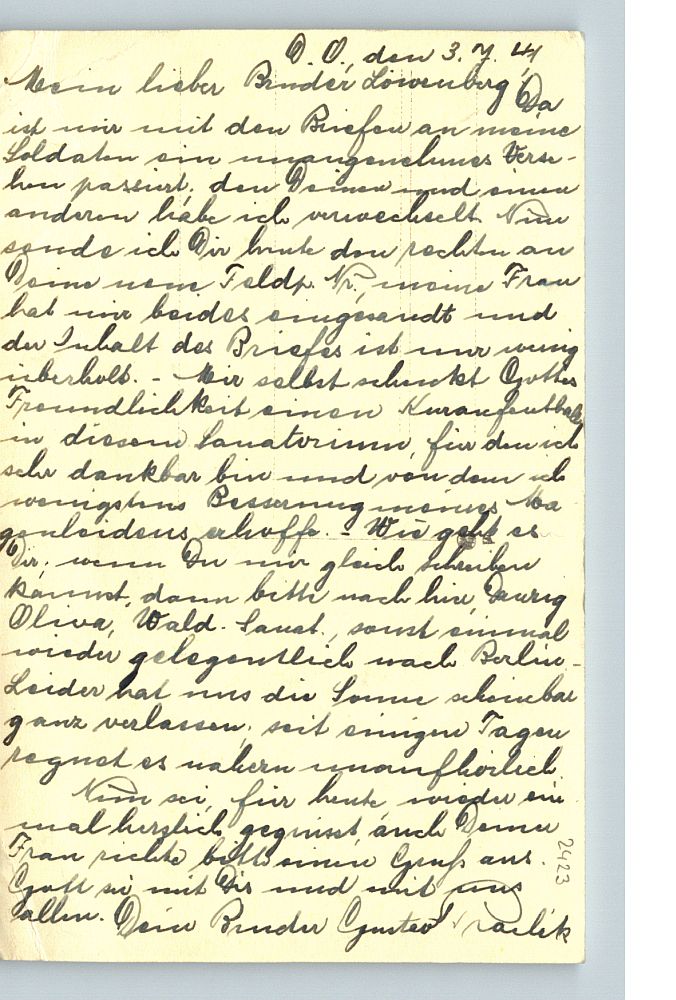 O. O., den 3. 7. 41
Mein lieber Bruder Löwenberg! Da
ist mir mit den Briefen an meine
Soldaten ein unangenehmes Verse-
hen passiert: den Deinen und einen
anderen habe ich verwechselt. Nun
sende ich Dir heute den rechten an
Deine neue Feldp. Nr., meine Frau
hat mir beides eingesandt und
der Inhalt des Briefes ist nur wenig
überholt. - Mir selbst schenkt Gottes
Freundlichkeit einen Kuraufenthalt
in diesem Sanatorium, für den ich
sehr dankbar bin und von dem ich
wenigstens Besserung meines Ma
genleidens erhoffe. - Wie geht es
Dir; wenn Du mir gleich schreiben
kannst, dann bitte nach hier, Danzig
Oliva, Wald-Sanat., sonst einmal
wieder gelegentlich nach Berlin.-
Leider hat uns die Sonne scheinbar
ganz verlassen; seit einigen Tagen
regnet es nahezu unaufhörlich.
Nun sei, für heute, wieder ein
mal herzlich gegrüsst, auch Deiner
Frau richte bitte einen Gruß aus.
Gott sei mit Dir und mit uns
allen. Dein Bruder Gustav
2423